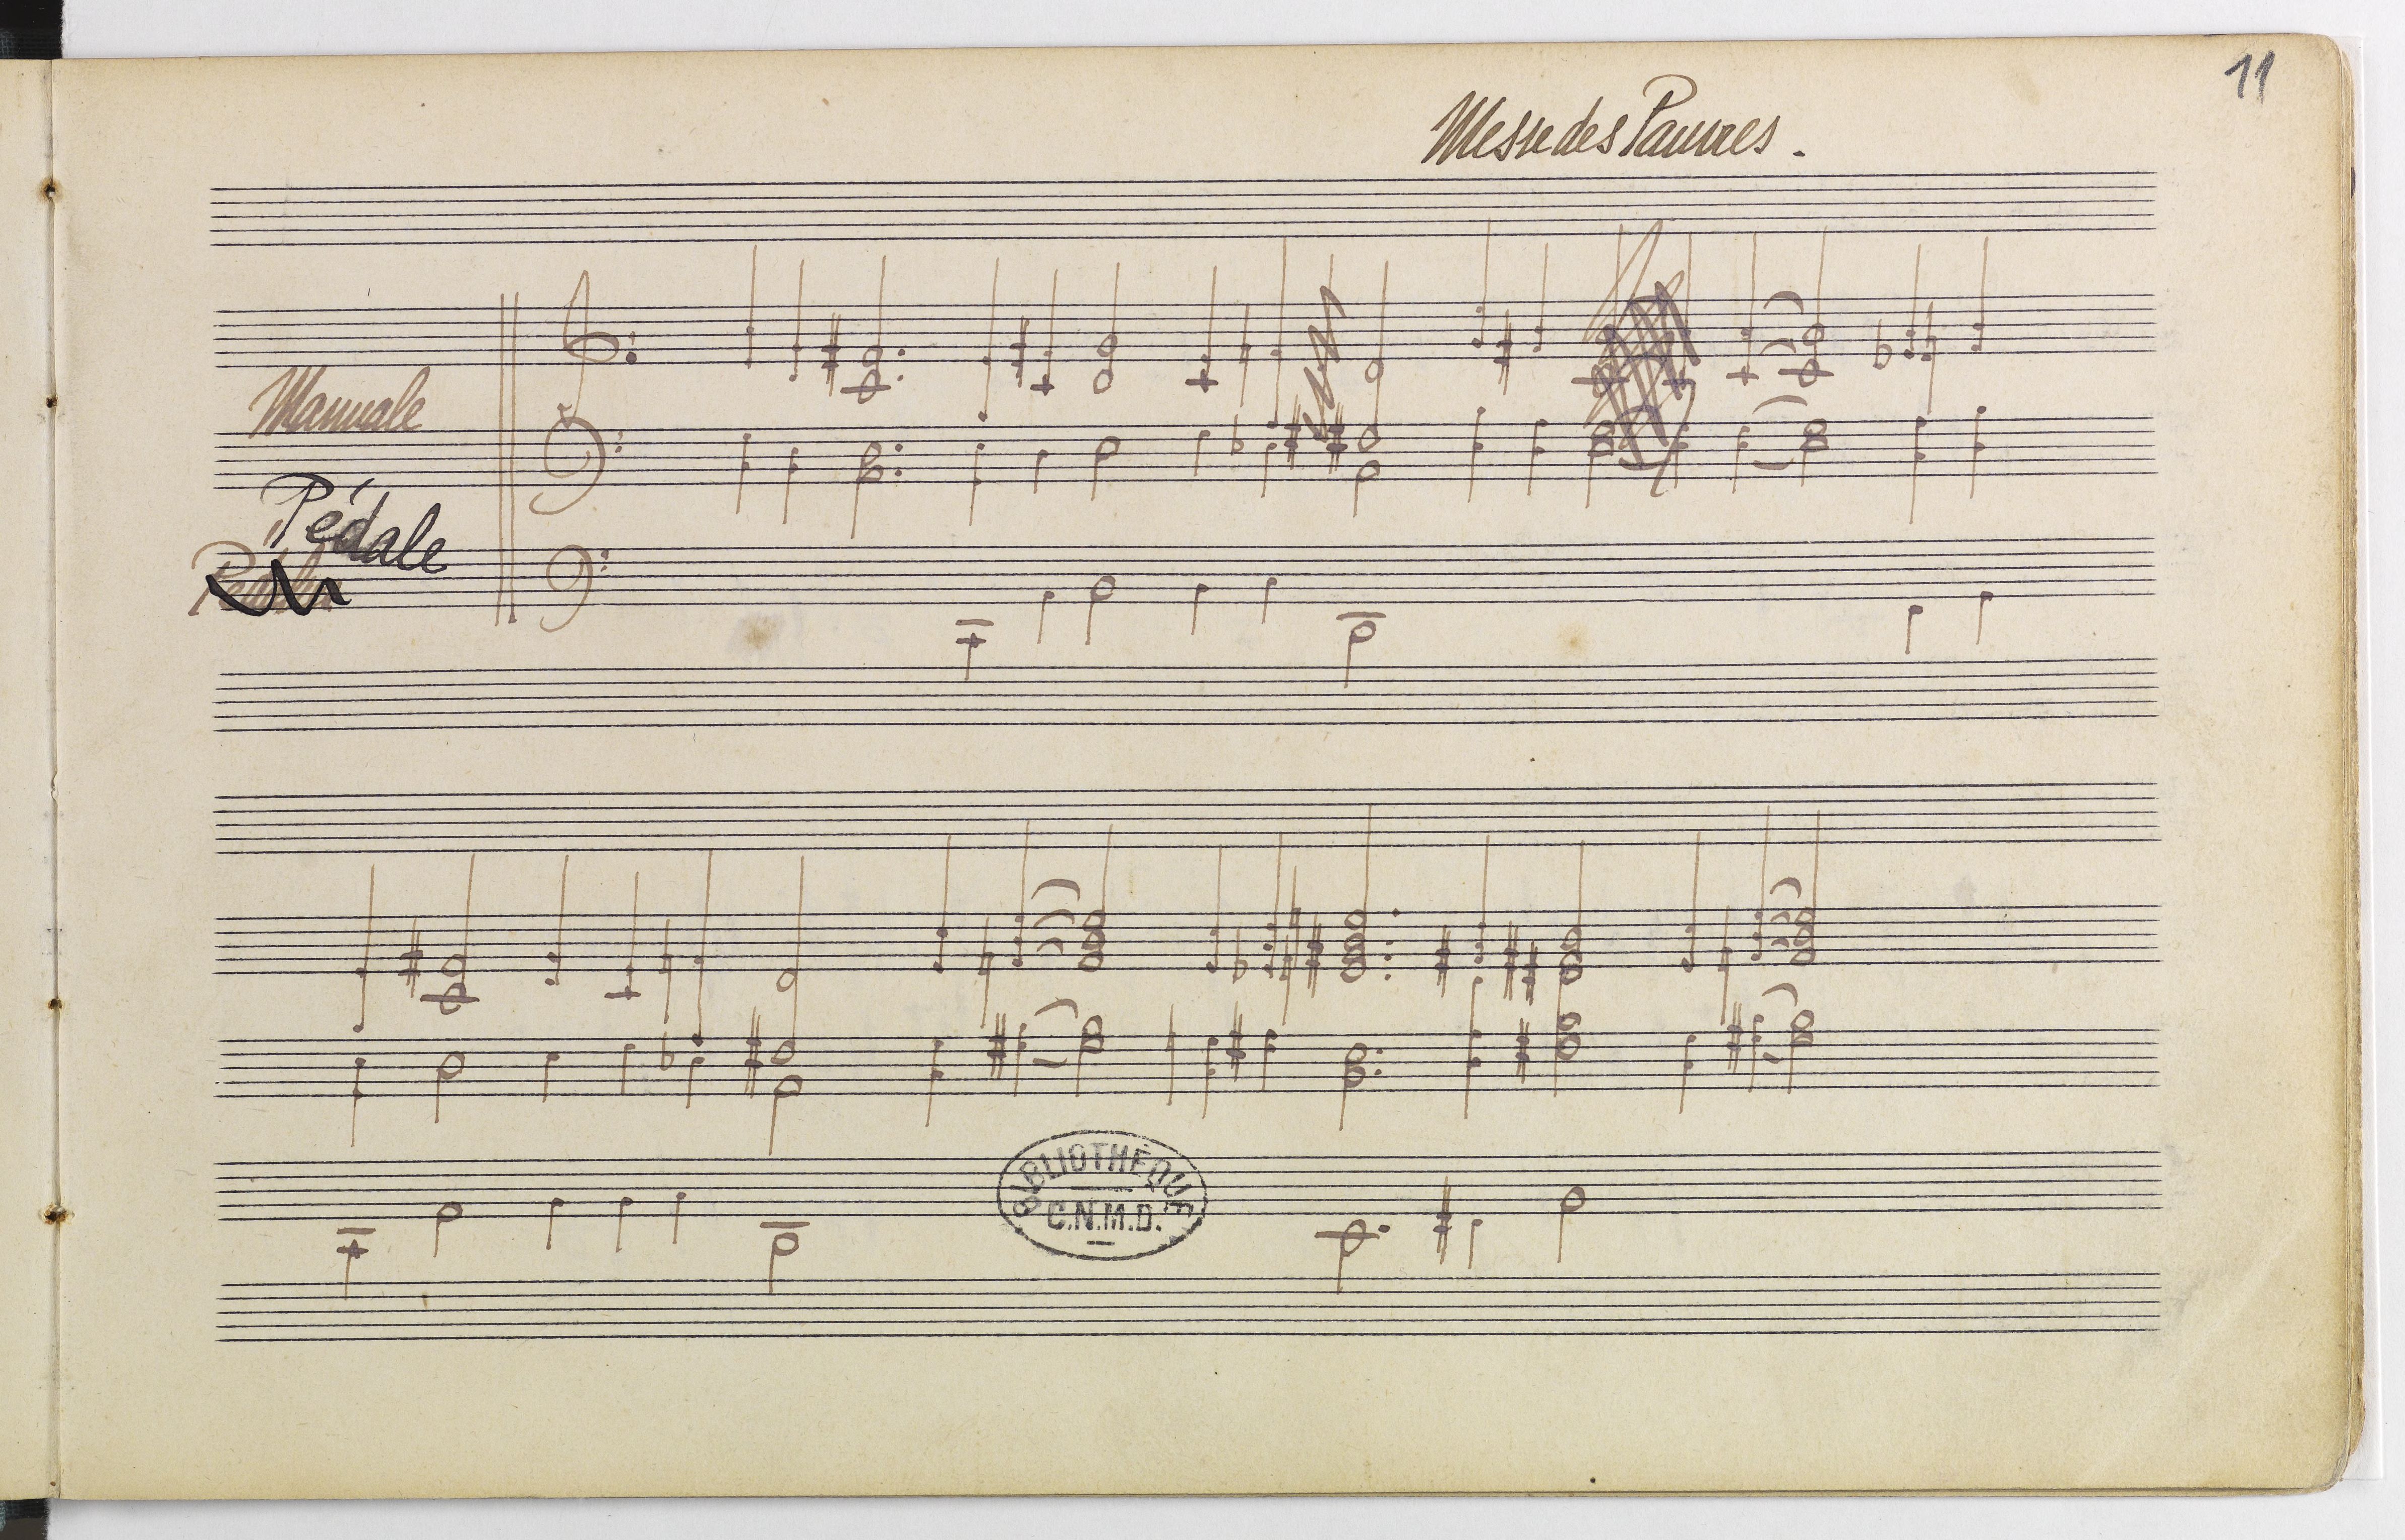 11
Messe des Pauvres.
Manuale
Pédale
BIBLIOTHÈQUE
C.N.M.D.